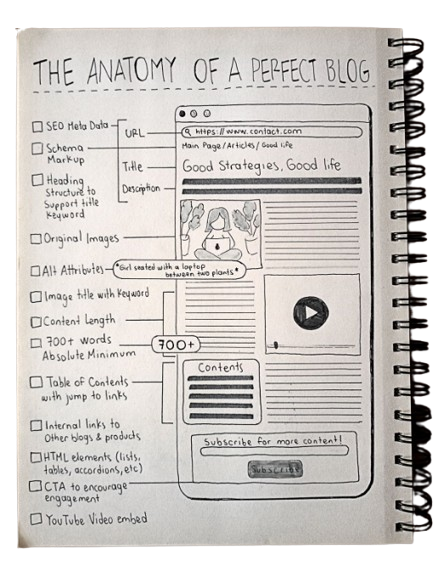 THE ANATOMY OF A PERFECT BLOG
SEO Meta Data
Schema
Markup
Heading
Structure to
Support title
Keyword
Original Images
Alt Attributes
Image title with Keyword
Content Length
700+ words
Absolute Minimum
Table of Contents
with jump to links
Internal links to
Other blogs & products
HTML elements (lists,
tables, accordions, etc)
CTA to encourage
engagement
YouTube Video embed
URL
Title
Description
"Girl seated with a laptop
between two plants"
700+
https://www.contact.com
Main Page/Articles/Good life
Good Strategies, Good life
Contents
Subscribe for more content!
Subscribe